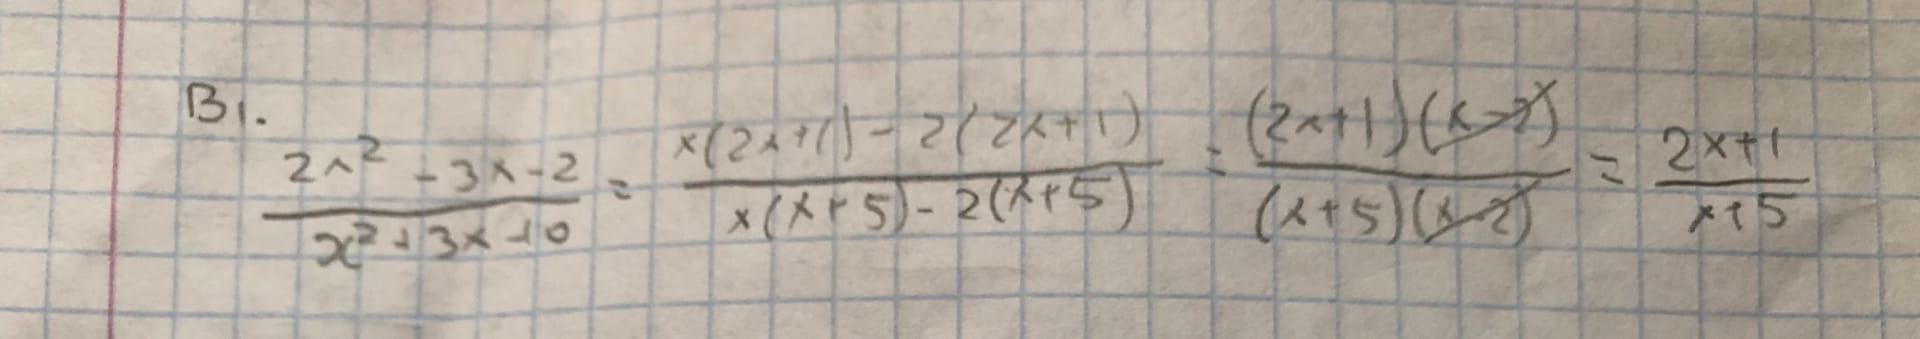 B1.
(2x² - 3x - 2)/(x² + 3x - 10) = (x(2x+1) - 2(2x+1))/(x(x+5) - 2(x+5)) = ((2x+1)(x-2))/((x+5)(x-2)) = (2x+1)/(x+5)